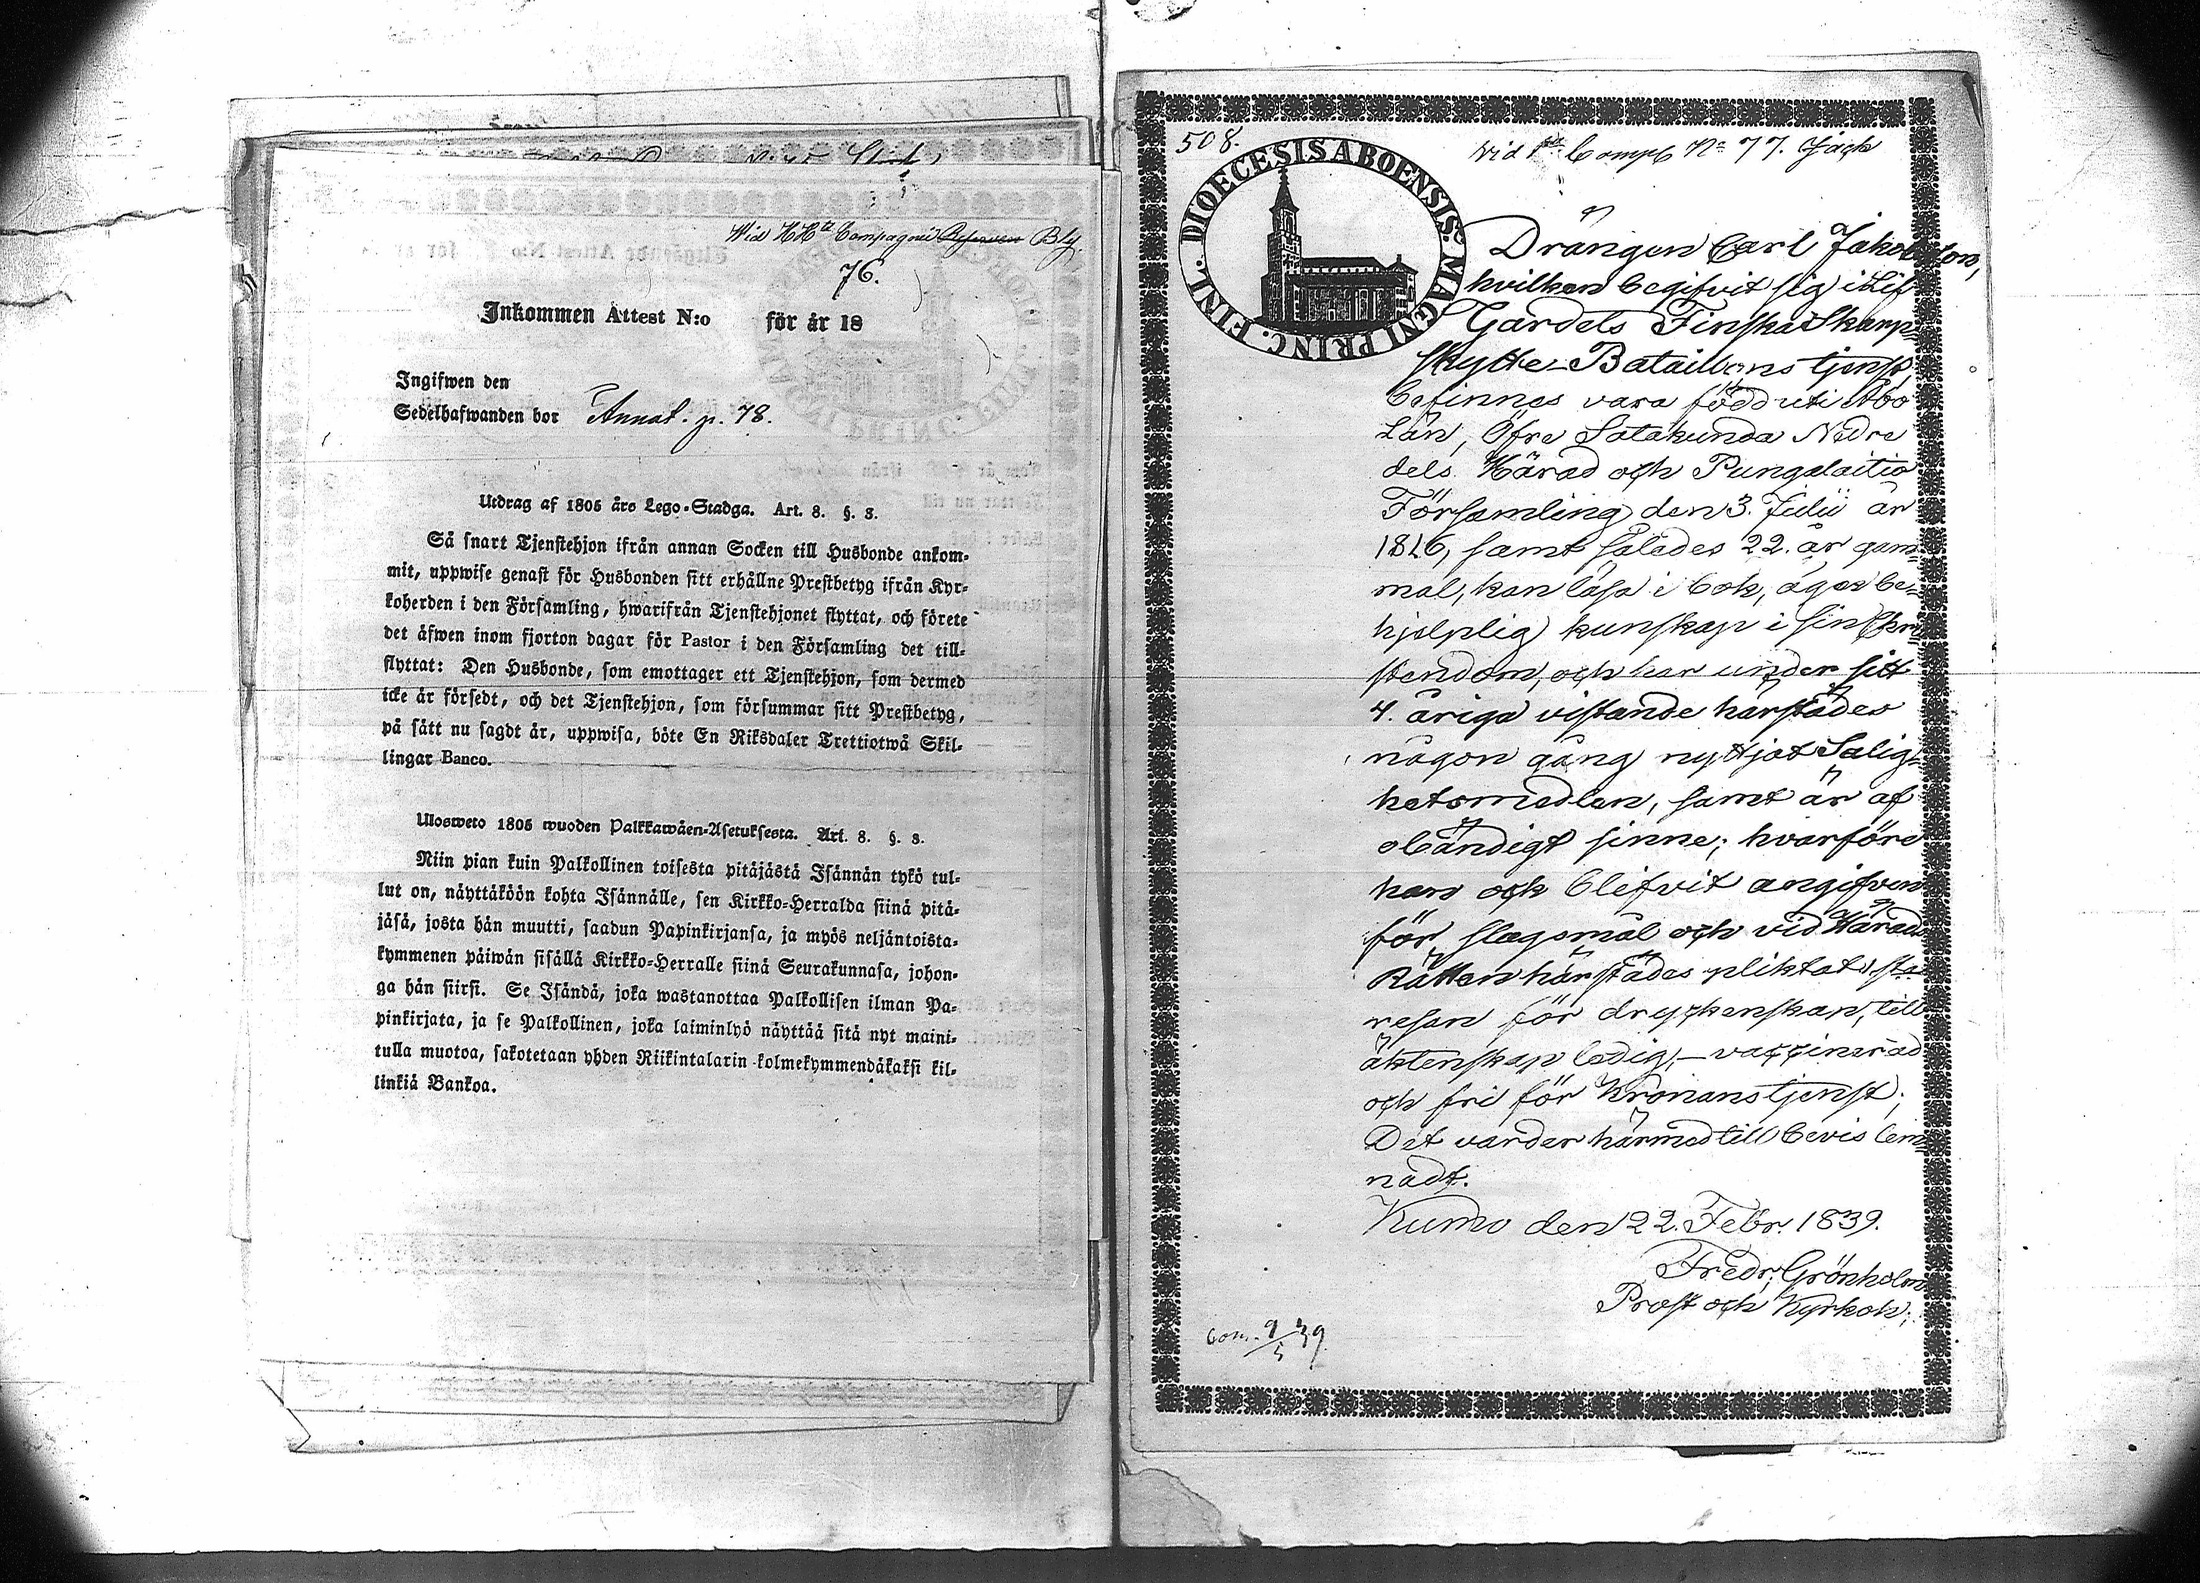 Wid HKta Compagnie Reserven Bly.
76.
Inkommen Attest N:o för år 18
Ingifwen den
Sedelhafwanden bor Annat. p. 78.
Utdrag af 1805 års Lego-Stadga. Art. 8. §. 3.
Så snart Tjenstehjon ifrån annan Socken till Husbonde ankom-
mit, uppwise genast för Husbonden sitt erhållne Prestbetyg ifrån Kyr-
koherden i den Församling, hwarifrån Tjenstehjonet flyttat, och förete
det äfwen inom fjorton dagar för Pastor i den Församling det till-
flyttat: Den Husbonde, som emottager ett Tjenstehjon, som dermed
icke är försedt, och det Tjenstehjon, som försummar sitt Prestbetyg,
på sätt nu sagdt är, uppwisa, böte En Riksdaler Trettiotwå Skil-
lingar Banco.
Ulosweto 1805 wuoden Palkkawäen-Asetuksesta. Art. 8. §. 3.
Niin pian kuin Palkollinen toisesta pitäjästä Isännän tykö tul-
lut on, näyttäköön kohta Isännälle, sen Kirkko-Herralda siinä pitä-
jäsä, josta hän muutti, saadun Papinkirjansa, ja myös neljäntoista-
kymmenen päiwän sisällä Kirkko-Herralle siinä Seurakunnasa, johon-
ga hän siirsi. Se Isändä, joka wastanottaa Palkollisen ilman Pa-
pinkirjata, ja se Palkollinen, joka laiminlyö näyttää sitä nyt maini-
tulla muotoa, sakotetaan yhden Riikintalarin kolmekymmendäkaksi kil-
linkiä Bankoa.
508.
Vid 1sta Comp. No 77. Jäck
DIOECESIS ABOENSIS MAGNI PRINC. FINL.
Drängen Carl Jakobsson,
hvilken begifvit sig i Lif
Gardets Finska Skarp-
skytte-Bataillons tjenst,
befinnes vara född uti Åbo
Län, Öfre Satakunda Nedre
dels Härad och Pungalaitio
Församling den 3. Julii år
1816, samt således 22. år gam-
mal, kan läsa i bok, äger be-
hjelplig kunskap i sin Chri-
stendom, och har under sitt
4. åriga vistande härstädes
någon gång nyttjat Salig-
hetsmedlen, samt är af
obändigt sinne; hvarföre
han ock blifvit angifven
för slagsmål och vid Härads
Rätten härstädes pliktat 1 sta
resan för dryckenskap, till
äktenskap ledig, – vaccinerad
och fri för Kronans tjenst;
Det varder härmed till bevis lem-
nadt.
Kumo den 22. Febr. 1839.
Fredr. Grönholm
Prost och Kyrkoh.
Com. 9/5 39.